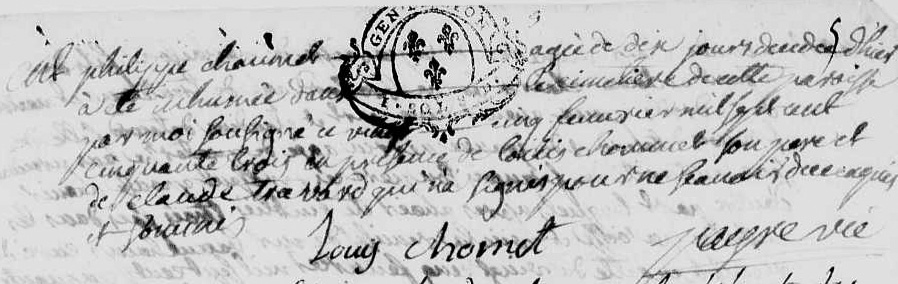 philippe chaumet agée de dix jours decedé d'hier
à été inhumée dans le cimetiere de cette paroisse
par moi soussigné ce vingt cinq feuvrier mil sept cent
cinquante trois en presence de Louis chommet son pere et
de claude qui n'a signé pour ne scavoir de ce enquis
et sommé
Louis chomet vic